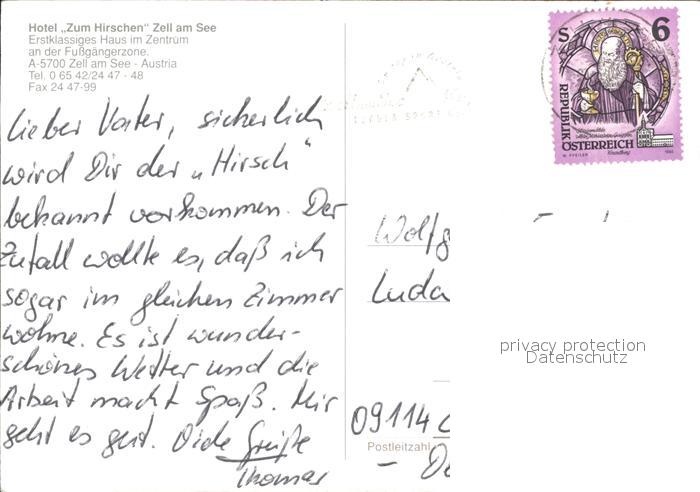 Hotel „Zum Hirschen" Zell am See
Erstklassiges Haus im Zentrum
an der Fußgängerzone.
A-5700 Zell am See - Austria
Tel. 0 65 42/24 47 - 48
Fax 24 47-99
Lieber Vater, sicherlich
wird Dir der „Hirsch"
bekannt vorkommen. Der
Zufall wollte es, daß ich
sogar im gleichen Zimmer
wohne. Es ist wunder-
schönes Wetter und die
Arbeit macht Spaß. Mir
geht es gut. Viele Grüße
Thomas
S 6
REPUBLIK
ÖSTERREICH
Wolfg
Luda
privacy protection
Datenschutz
09114
Postleitzahl